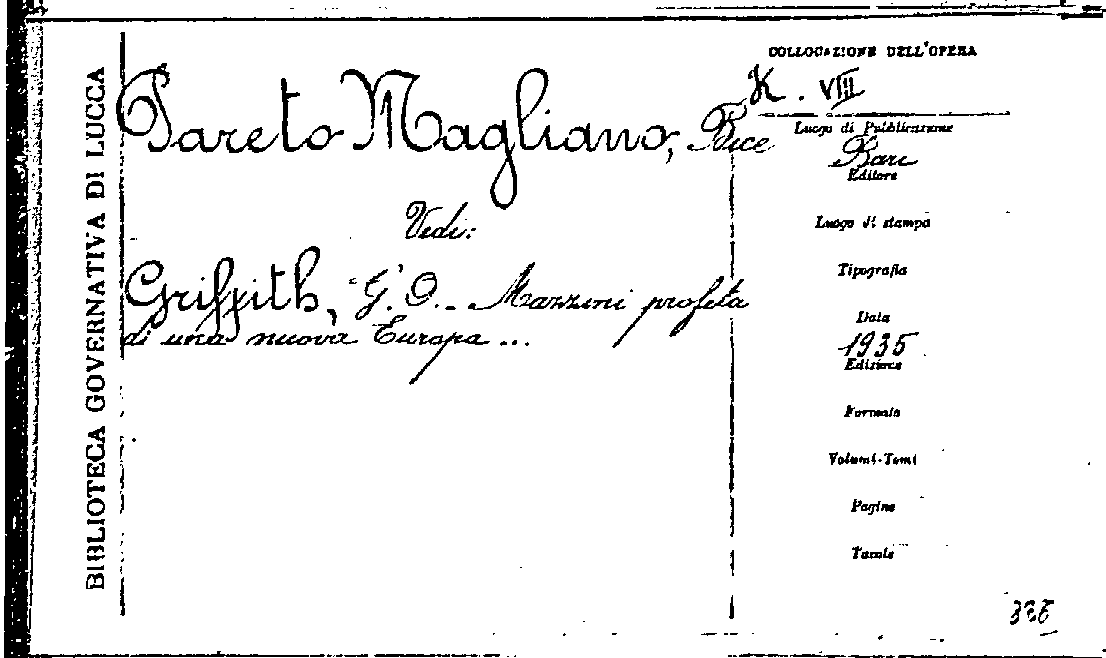 BIBLIOTECA GOVERNATIVA DI LUCCA
Pareto Magliano, Bice
Vedi:
Griffith, G. O. - Mazzini profeta
di una nuova Europa ...
COLLOCAZIONE DELL'OPERA
K. VIII
Luogo di Pubblicazione
Bari
Editore
Luogo di stampa
Tipografia
Data
1935
Edizione
Formato
Volumi-Tomi
Pagine
Tavole